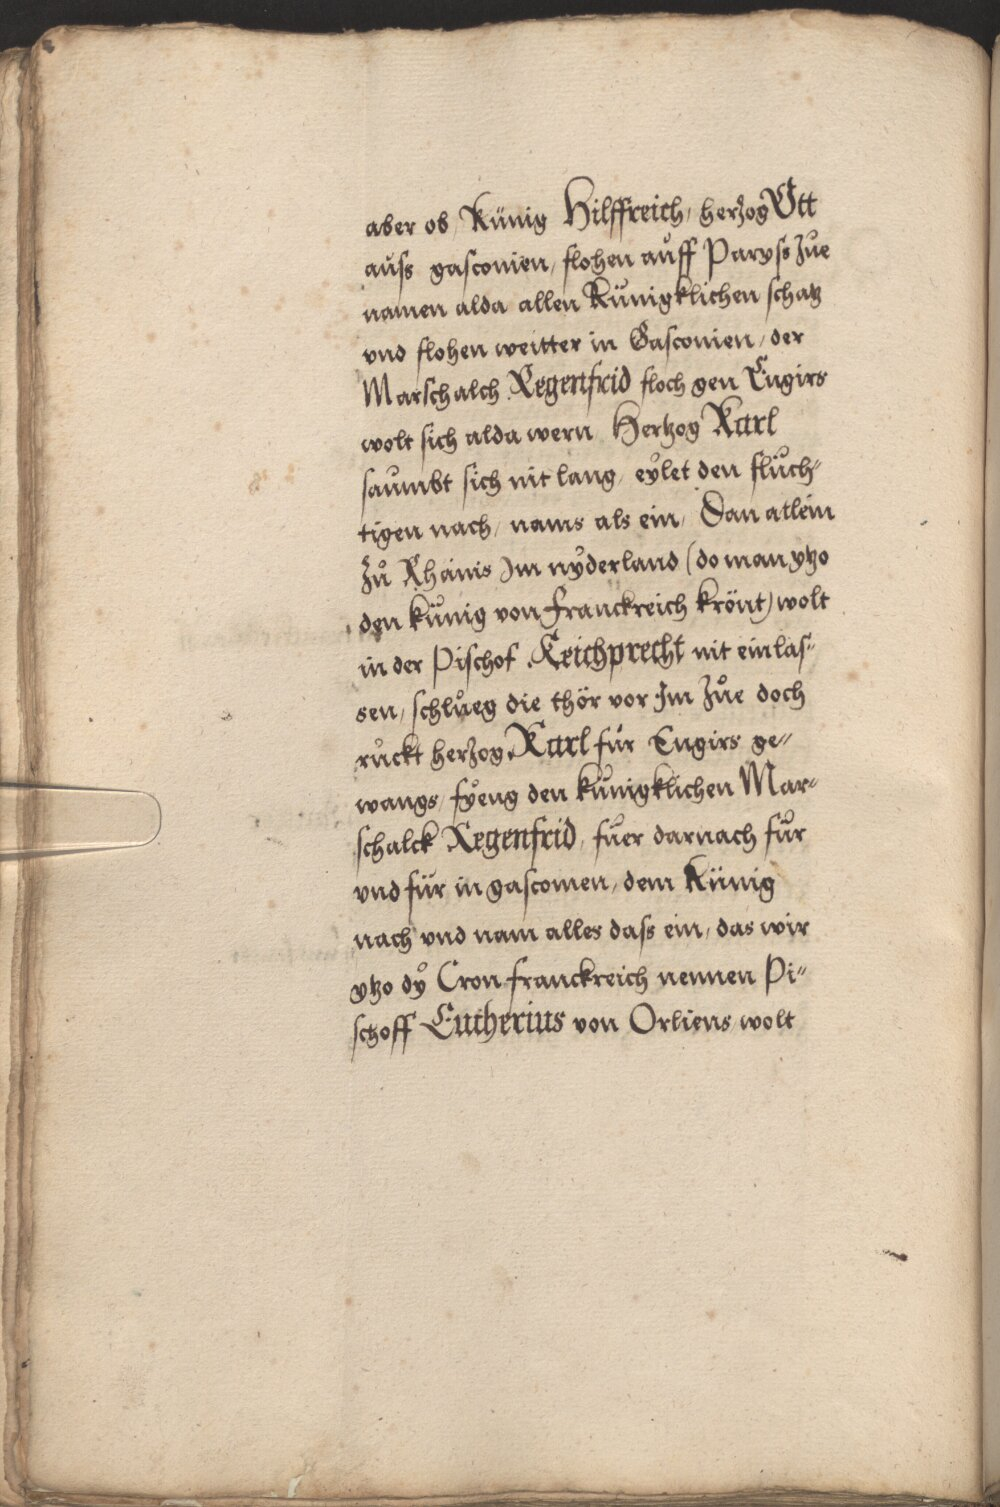 aber ob, Künig Hilffreich, herzog Ott
auss gasconien, flohen auff Paryss zue
namen alda allen Künigklichen schatz
vnd flohen weitter in Gasconien, der
Marschalch Regenfrid floch gen Engirs
wolt sich alda wern Hertzog Karl
saumbt sich nit lang, eylet den flüch"
tigen nach, nams als ein, Dan allein
Zu Rhains Im nyderland (do man ytzo
den künig von franckreich krönt) wolt
in der Pischof Reichprecht nit einlas"
sen, schlueg die thör vor Im zue doch
ruckt herzog Karl für Engirs ge"
wangs, fyeng den künigklichen Mar"
schalck Regenfrid, fuer darnach für
vnd für in gasconien, dem Künig
nach vnd nam alles dass ein, das wir
ytzo dy Cron franckreich nennen Pi"
schoff Eucherius von Orliens wolt